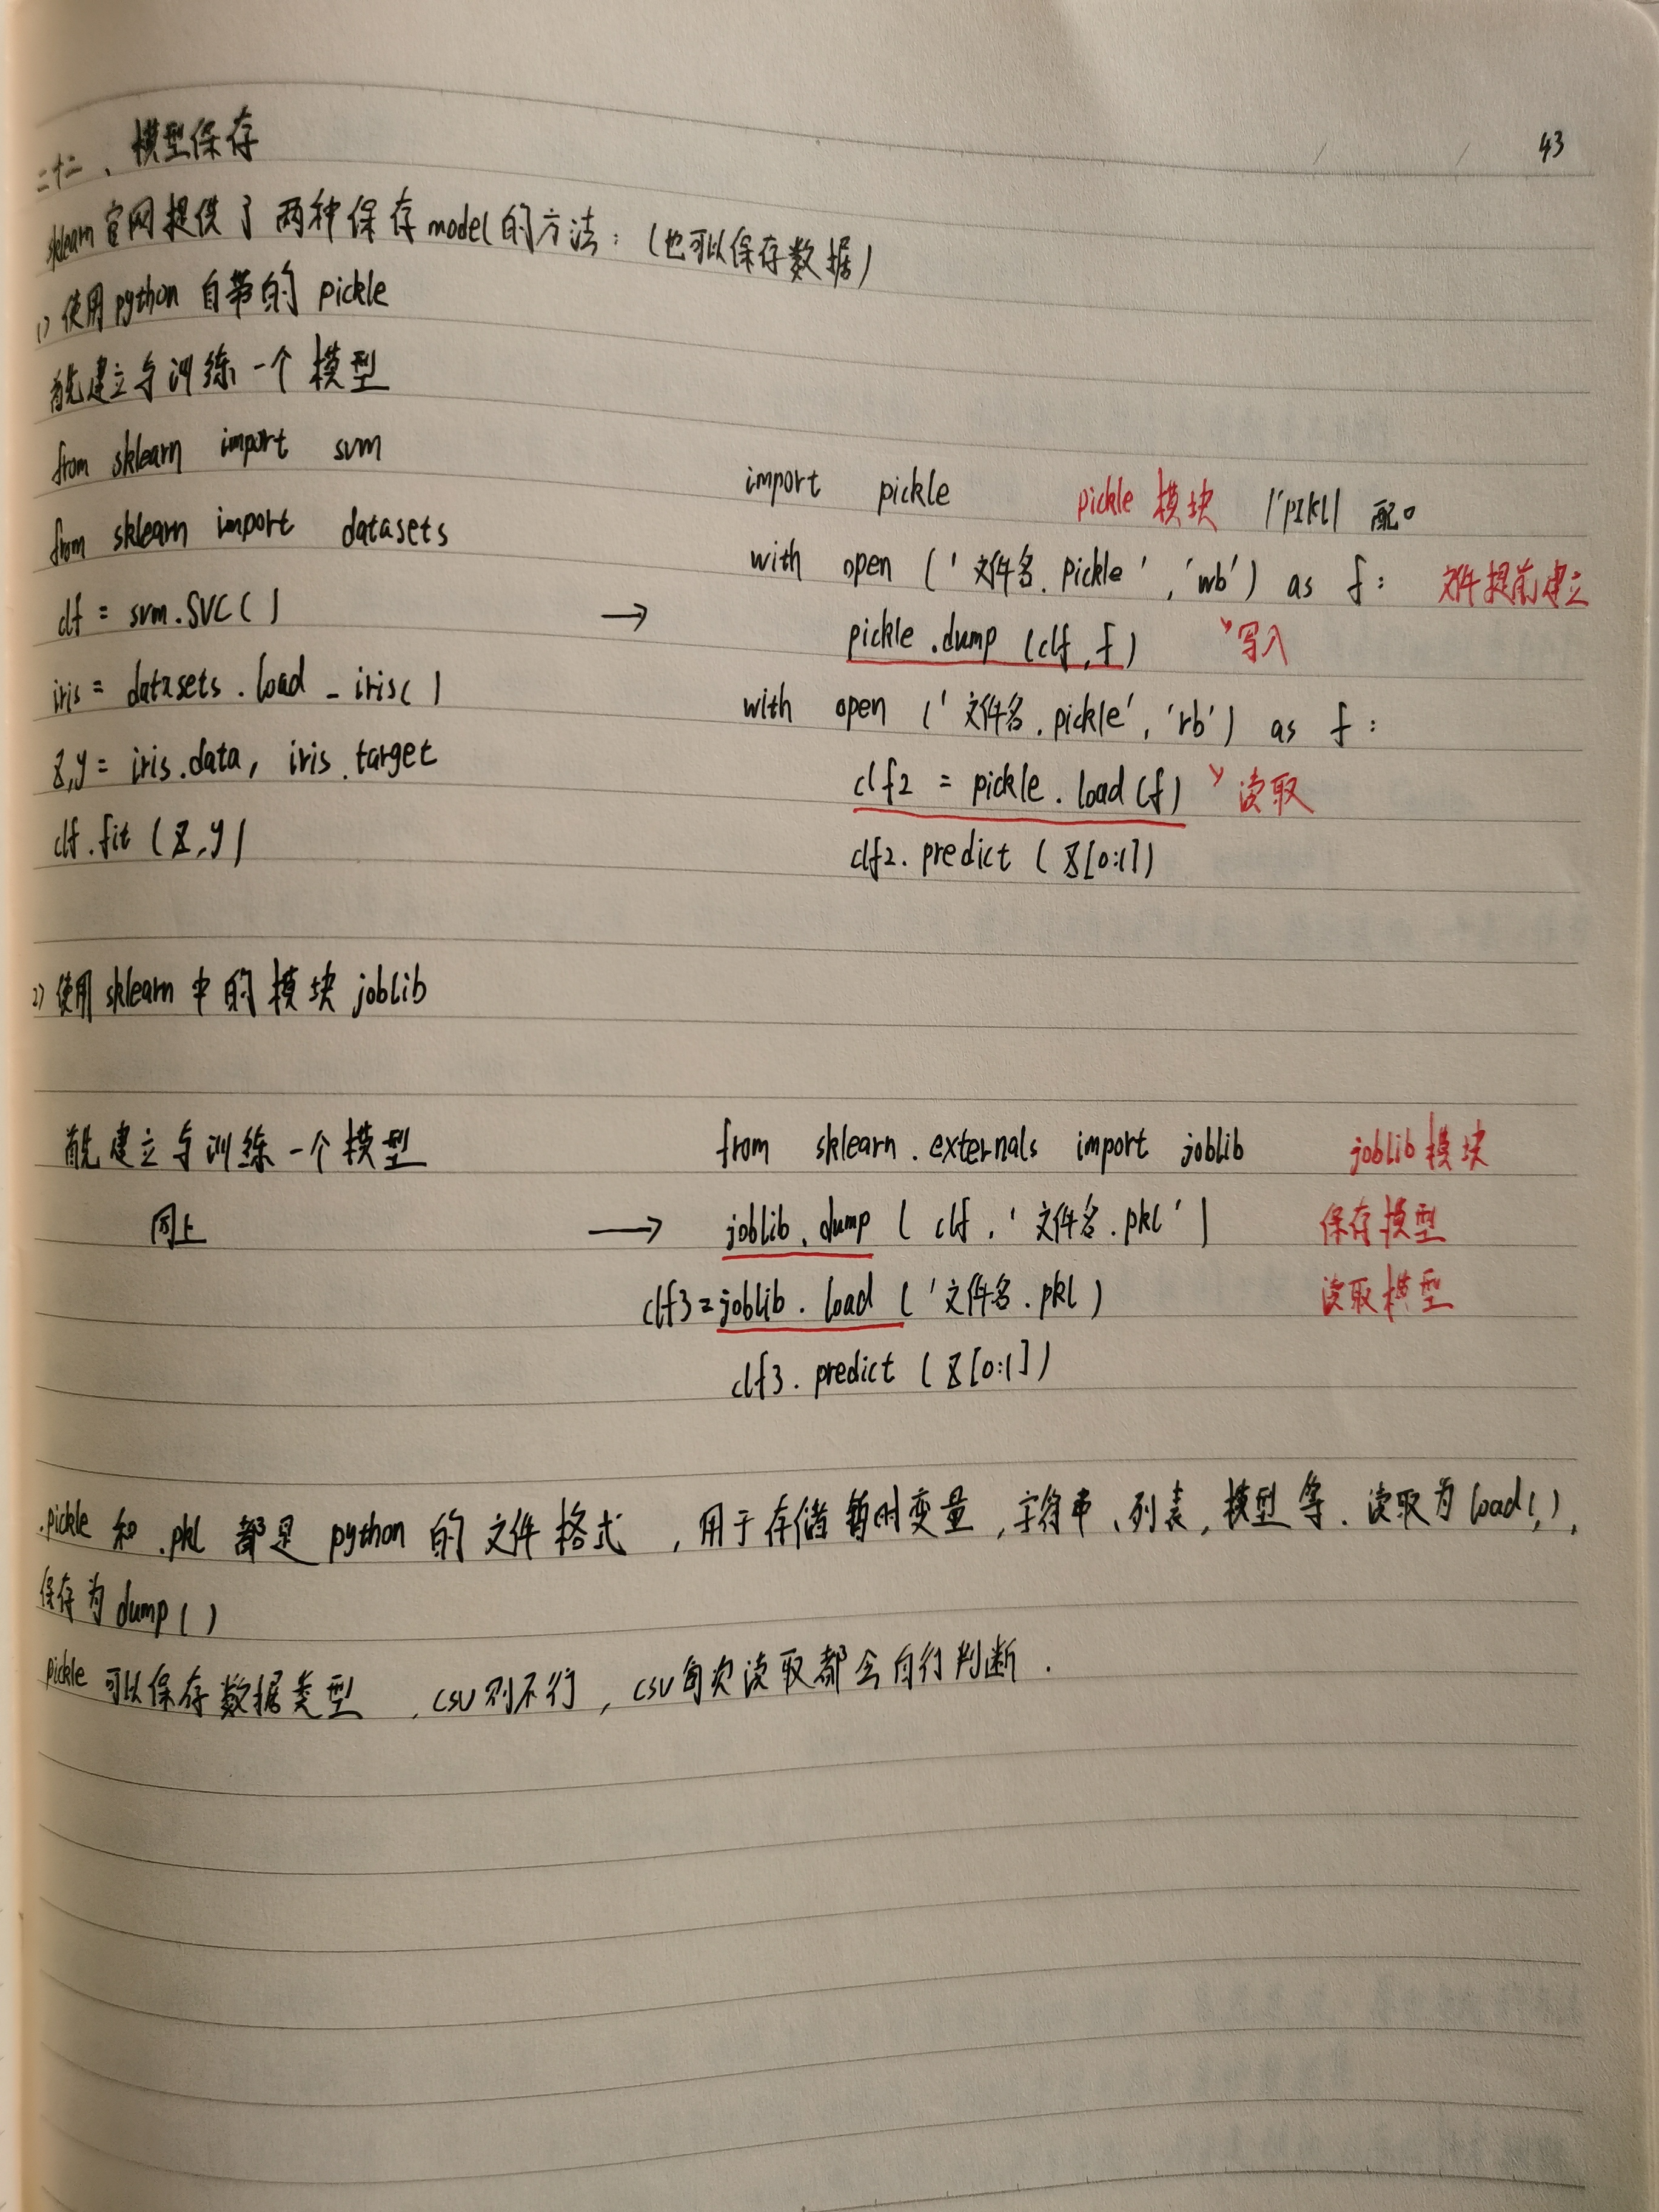 43
二十二、模型保存
sklearn官网提供了两种保存model的方法：(也可以保存数据)
1)使用python自带的pickle
首先建立与训练一个模型
from sklearn import svm
from sklearn import datasets
clf = svm.SVC()
iris = datasets.load_iris()
X,y = iris.data, iris.target
clf.fit(X,y)
→
import pickle pickle模块 |'pɪkl|
with open('文件名.pickle','wb') as f: 文件提前建立
pickle.dump(clf,f) 写入
with open('文件名.pickle','rb') as f:
clf2 = pickle.load(f) 读取
clf2.predict(X[0:1])
2)使用sklearn中的模块joblib
首先建立与训练一个模型
同上
→
from sklearn.externals import joblib joblib模块
joblib.dump(clf,'文件名.pkl') 保存模型
clf3=joblib.load('文件名.pkl) 读取模型
clf3.predict(X[0:1])
.pickle和.pkl都是python的文件格式,用于存储暂时变量,字符串、列表,模型等.读取为load(),
保存为dump()
pickle可以保存数据类型,csv则不行,csv每次读取都会自行判断.